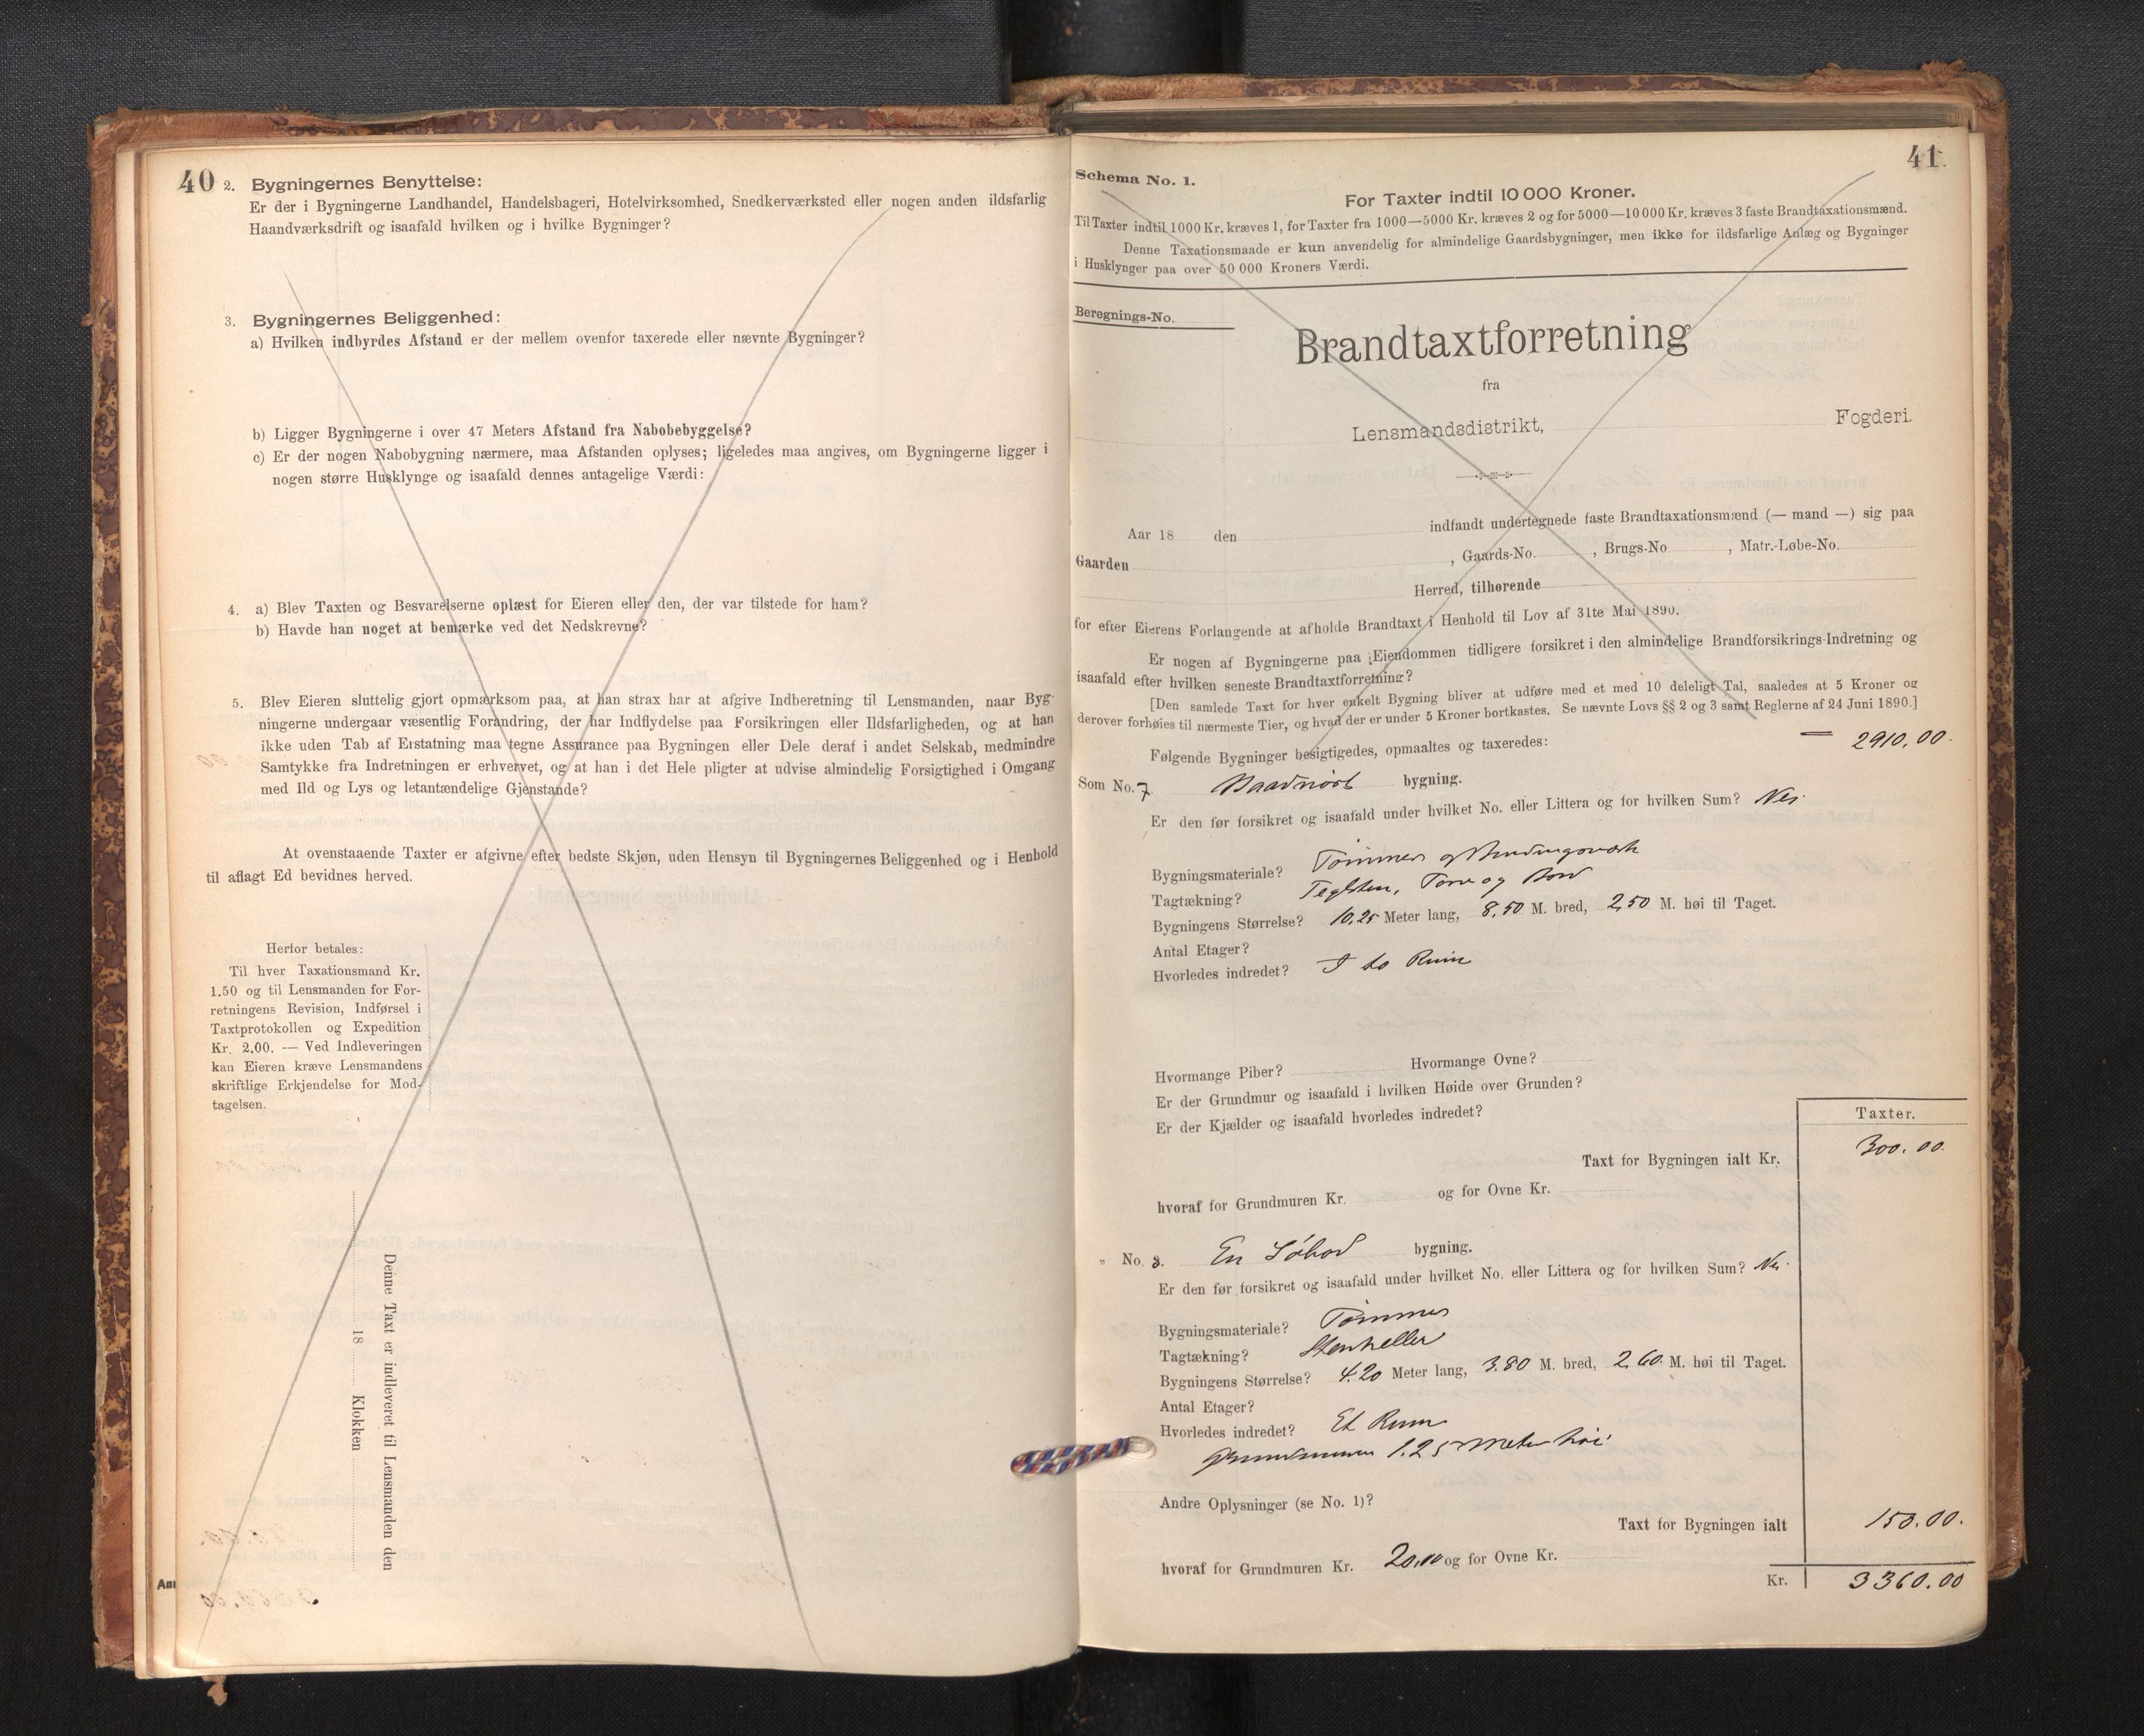 40
2. Bygningernes Benyttelse:
Er der i Bygningerne Landhandel, Handelsbageri, Hotelvirksomhed, Snedkerværksted eller nogen anden ildsfarlig
Haandværksdrift og isaafald hvilken og i hvilke Bygninger?
3. Bygningernes Beliggenhed:
a) Hvilken indbyrdes Afstand er der mellem ovenfor taxerede eller nævnte Bygninger?
b) Ligger Bygningerne i over 47 Meters Afstand fra Nabobebyggelse?
c) Er der nogen Nabobygning nærmere, maa Afstanden oplyses; ligeledes maa angives, om Bygningerne ligger i
nogen større Husklynge og isaafald dennes antagelige Værdi:
4. a) Blev Taxten og Besvarelserne oplæst for Eieren eller den, der var tilstede for ham?
b) Havde han noget at bemærke ved det Nedskrevne?
5. Blev Eieren sluttelig gjort opmærksom paa, at han strax har at afgive Indberetning til Lensmanden, naar Byg-
ningerne undergaar væsentlig Forandring, der har Indflydelse paa Forsikringen eller Ildsfarligheden, og at han
ikke uden Tab af Erstatning maa tegne Assurance paa Bygningen eller Dele deraf i andet Selskab, medmindre
Samtykke fra Indretningen er erhvervet, og at han i det Hele pligter at udvise almindelig Forsigtighed i Omgang
med Ild og Lys og letantændelige Gjenstande?
At ovenstaaende Taxter er afgivne efter bedste Skjøn, uden Hensyn til Bygningernes Beliggenhed og i Henhold
til aflagt Ed bevidnes herved.
Herfor betales:
Til hver Taxationsmand Kr.
1.50 og til Lensmanden for For-
retningens Revision, Indførsel i
Taxtprotokollen og Expedition
Kr. 2.00. — Ved Indleveringen
kan Eieren kræve Lensmandens
skriftlige Erkjendelse for Mod-
tagelsen.
Denne Taxt er indleveret til Lensmanden den
18 Klokken
41
Schema No. 1.
For Taxter indtil 10 000 Kroner.
Til Taxter indtil 1000 Kr. kræves 1, for Taxter fra 1000—5000 Kr. kræves 2 og for 5000—10 000 Kr. kræves 3 faste Brandtaxationsmænd.
Denne Taxationsmaade er kun anvendelig for almindelige Gaardsbygninger, men ikke for ildsfarlige Anlæg og Bygninger
i Husklynger paa over 50 000 Kroners Værdi.
Beregnings-No.
Brandtaxtforretning
fra
Lensmandsdistrikt, Fogderi.
Aar 18 den indfandt undertegnede faste Brandtaxationsmænd (— mand —) sig paa
Gaarden , Gaards-No. , Brugs-No , Matr.-Løbe-No.
Herred, tilhørende
for efter Eierens Forlangende at afholde Brandtaxt i Henhold til Lov af 31te Mai 1890.
Er nogen af Bygningerne paa Eiendommen tidligere forsikret i den almindelige Brandforsikrings-Indretning og
isaafald efter hvilken seneste Brandtaxtforretning?
[Den samlede Taxt for hver enkelt Bygning bliver at udføre med et med 10 deleligt Tal, saaledes at 5 Kroner og
derover forhøies til nærmeste Tier, og hvad der er under 5 Kroner bortkastes. Se nævnte Lovs §§ 2 og 3 samt Reglerne af 24 Juni 1890.]
Følgende Bygninger besigtigedes, opmaaltes og taxeredes: = 2910.00.
Som No. 7. Baadnøst bygning.
Er den før forsikret og isaafald under hvilket No. eller Littera og for hvilken Sum? Nei
Bygningsmateriale? Tømmer og Bindingsværk
Tagtækning? Teglsten, Torv og Bord
Bygningens Størrelse? 10.25 Meter lang, 8.50 M. bred, 2,50 M. høi til Taget.
Antal Etager?
Hvorledes indredet? I to Rum
Hvormange Piber? Hvormange Ovne?
Er der Grundmur og isaafald i hvilken Høide over Grunden?
Er der Kjælder og isaafald hvorledes indredet?
Taxter.
Taxt for Bygningen ialt Kr. 300.00.
hvoraf for Grundmuren Kr. og for Ovne Kr.
" No. 8. En Søbod bygning.
Er den før forsikret og isaafald under hvilket No. eller Littera og for hvilken Sum? Nei.
Bygningsmateriale? Tømmer
Tagtækning? Stenheller
Bygningens Størrelse? 4.20 Meter lang, 3.80 M. bred, 2,60 M. høi til Taget.
Antal Etager?
Hvorledes indredet? Et Rum
Grundmuren 1.25 Meter høi
Andre Oplysninger (se No. 1)?
Taxt for Bygningen ialt 150.00.
hvoraf for Grundmuren Kr. 20,00 og for Ovne Kr.
Kr. 3360.00